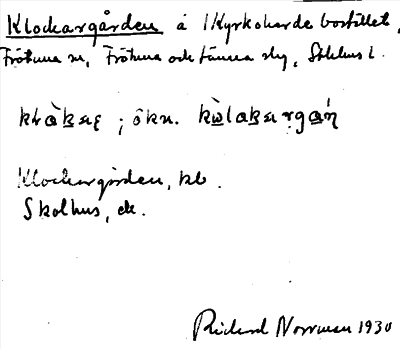 Klockargården å Kyrkoherdebostället,
Frötuna sn, Frötuna och Länna skg, Sthlms l.
; ökn.
Klockargården, kb.
Skolhus, ek.
Rickard Norrman 1930